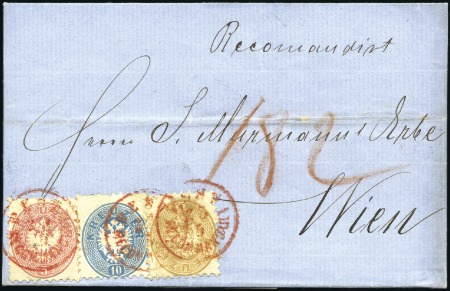 Recomandirt
182
Herrn S. Murmann's Erbe
Wien
10